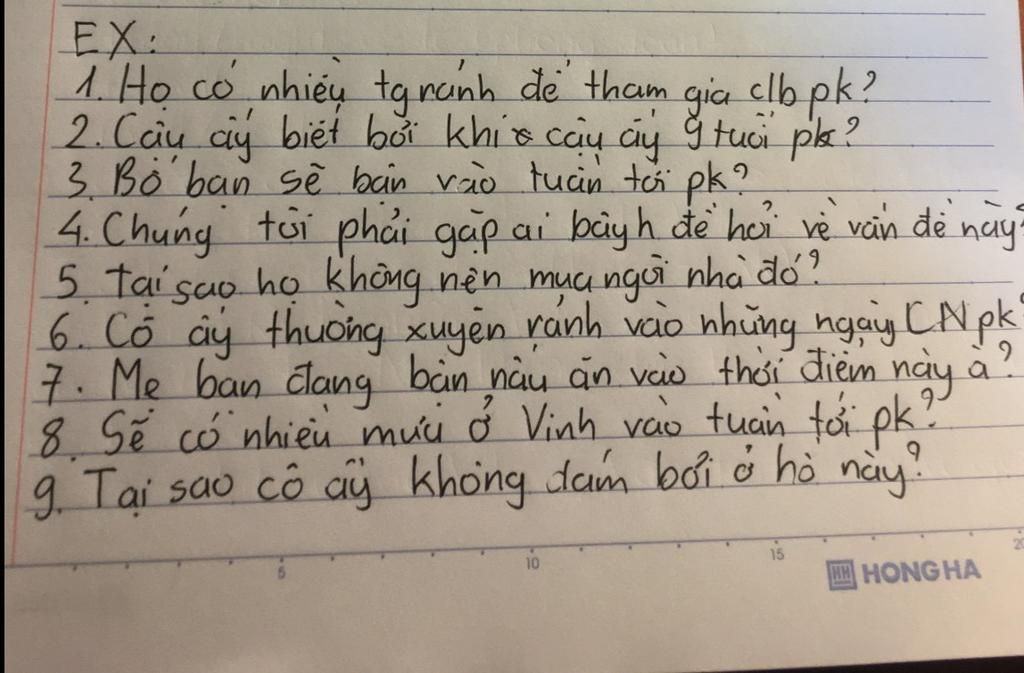 EX:
1. Họ có nhiều tg rảnh để tham gia clb pk?
2. Cậu ấy biết bơi khi cậu ấy 9 tuổi pk?
3. Bố bạn sẽ bận vào tuần tới pk?
4. Chúng tôi phải gặp ai bây h để hỏi về vấn đề này?
5. Tại sao họ không nên mua ngôi nhà đó?
6. Cô ấy thường xuyên rảnh vào những ngày CN pk?
7. Mẹ bạn đang bận nấu ăn vào thời điểm này à?
8. Sẽ có nhiều mưa ở Vinh vào tuần tới pk?
9. Tại sao cô ấy không dám bơi ở hồ này?
5 10 15 20
HH HONG HA